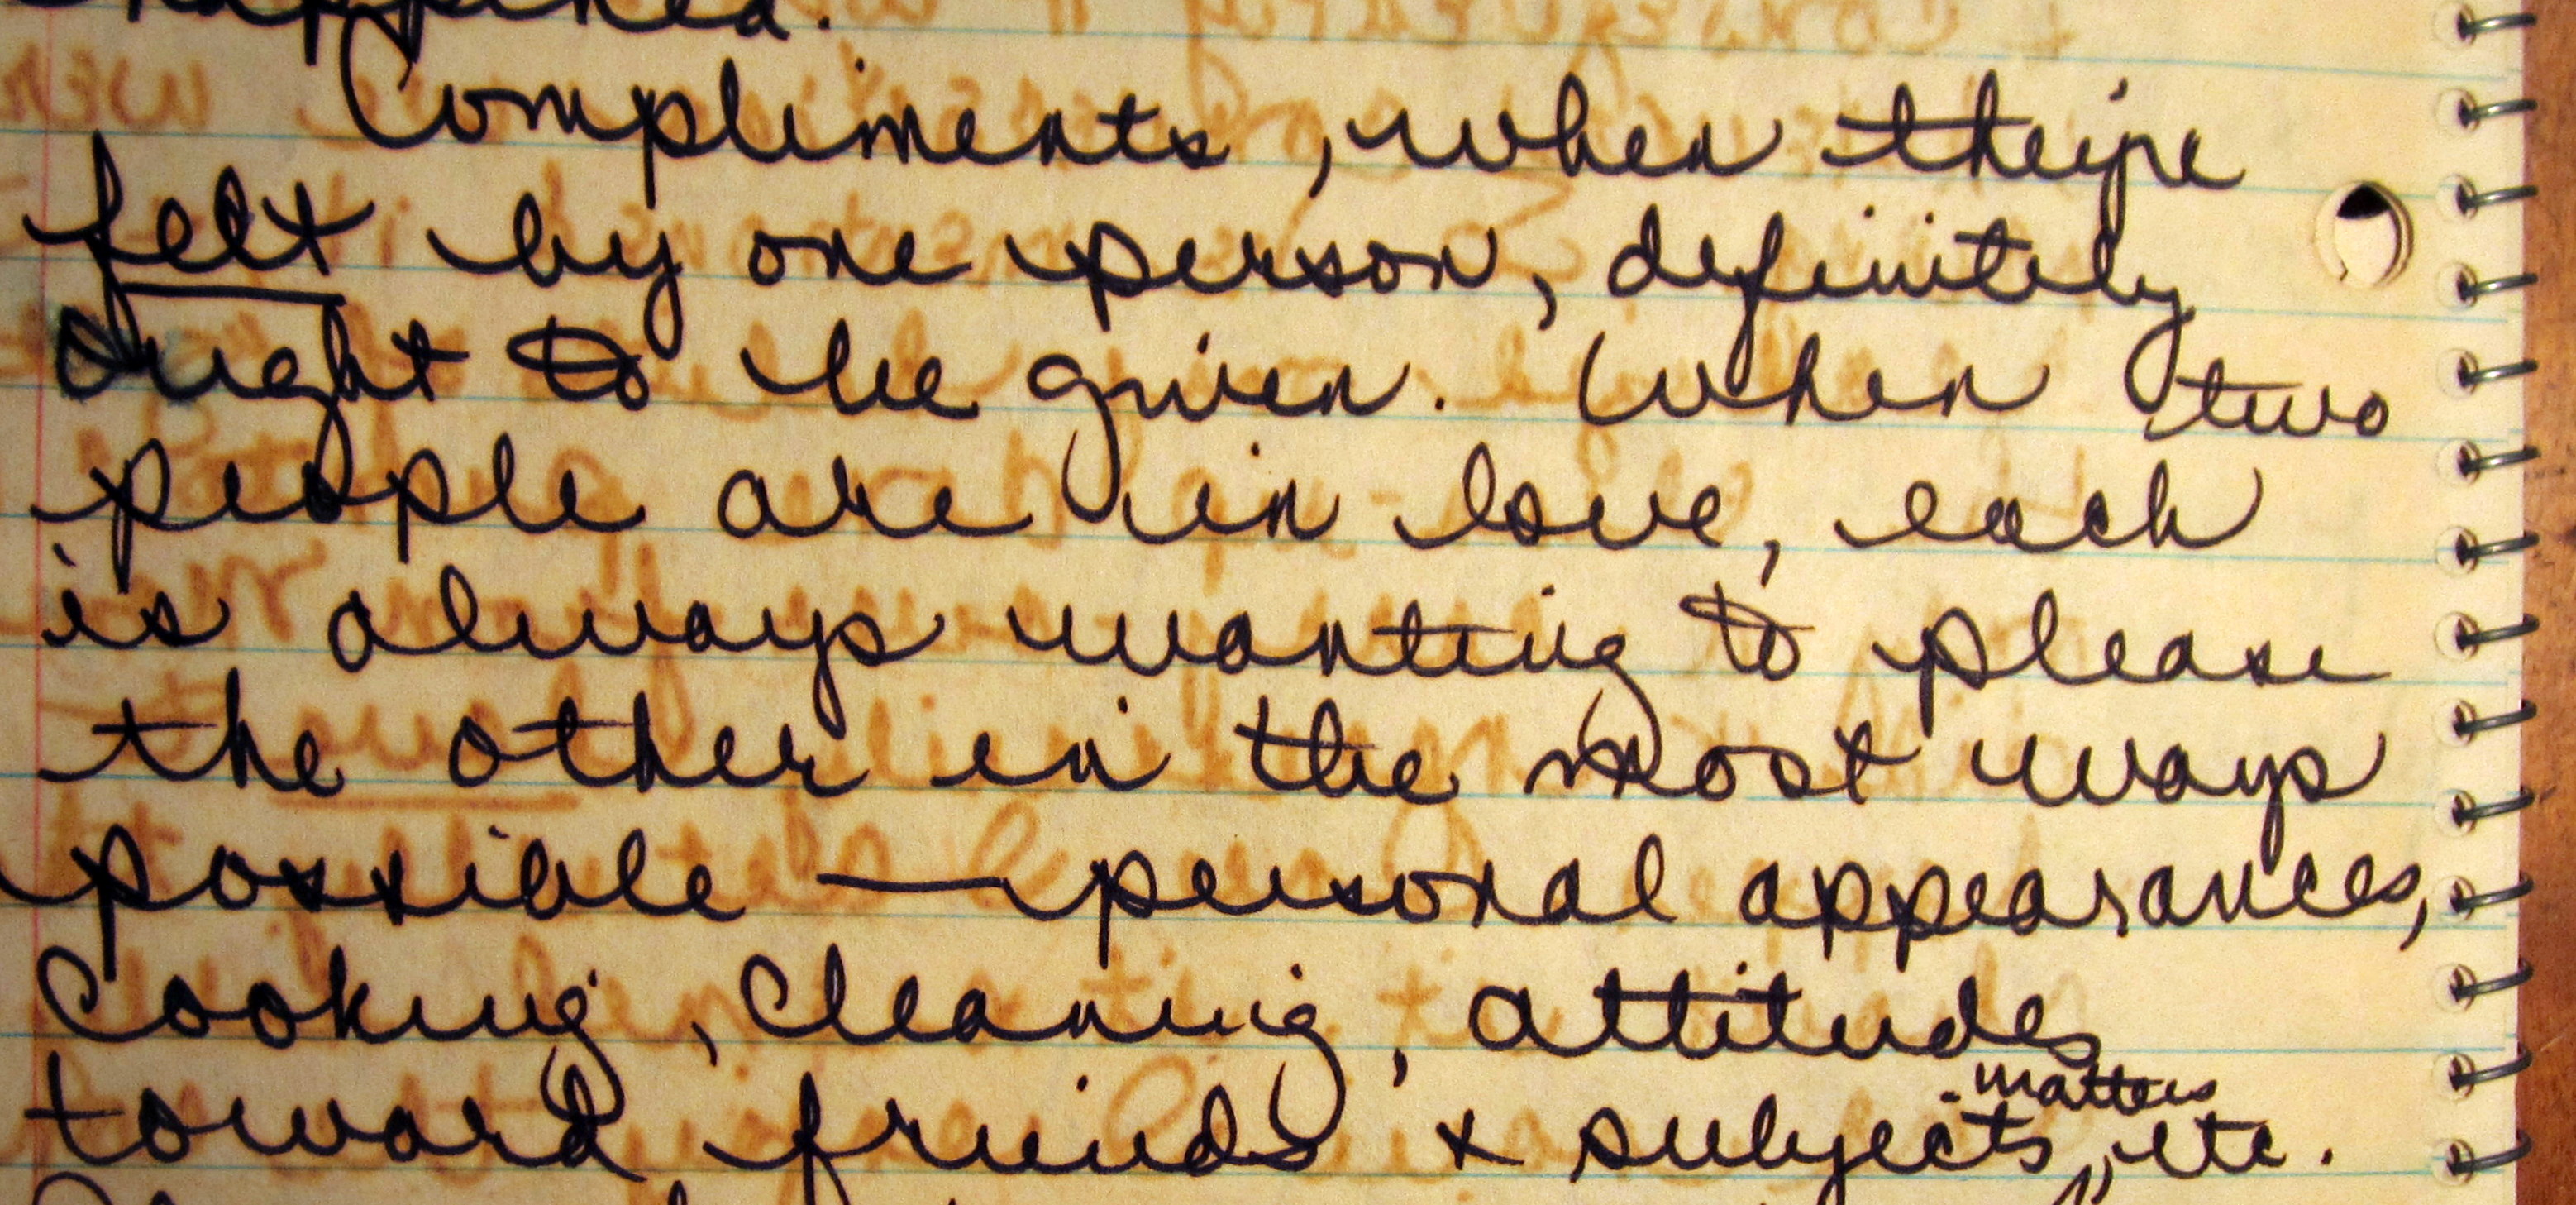 happened.
Compliments, when they're
felt by one person, definitely
ought to be given. When two
people are in love, each
is always wanting to please
the other in the most ways
possible — personal appearances,
Cooking, Cleaning, attitudes
matters
toward friends & subjects, etc.